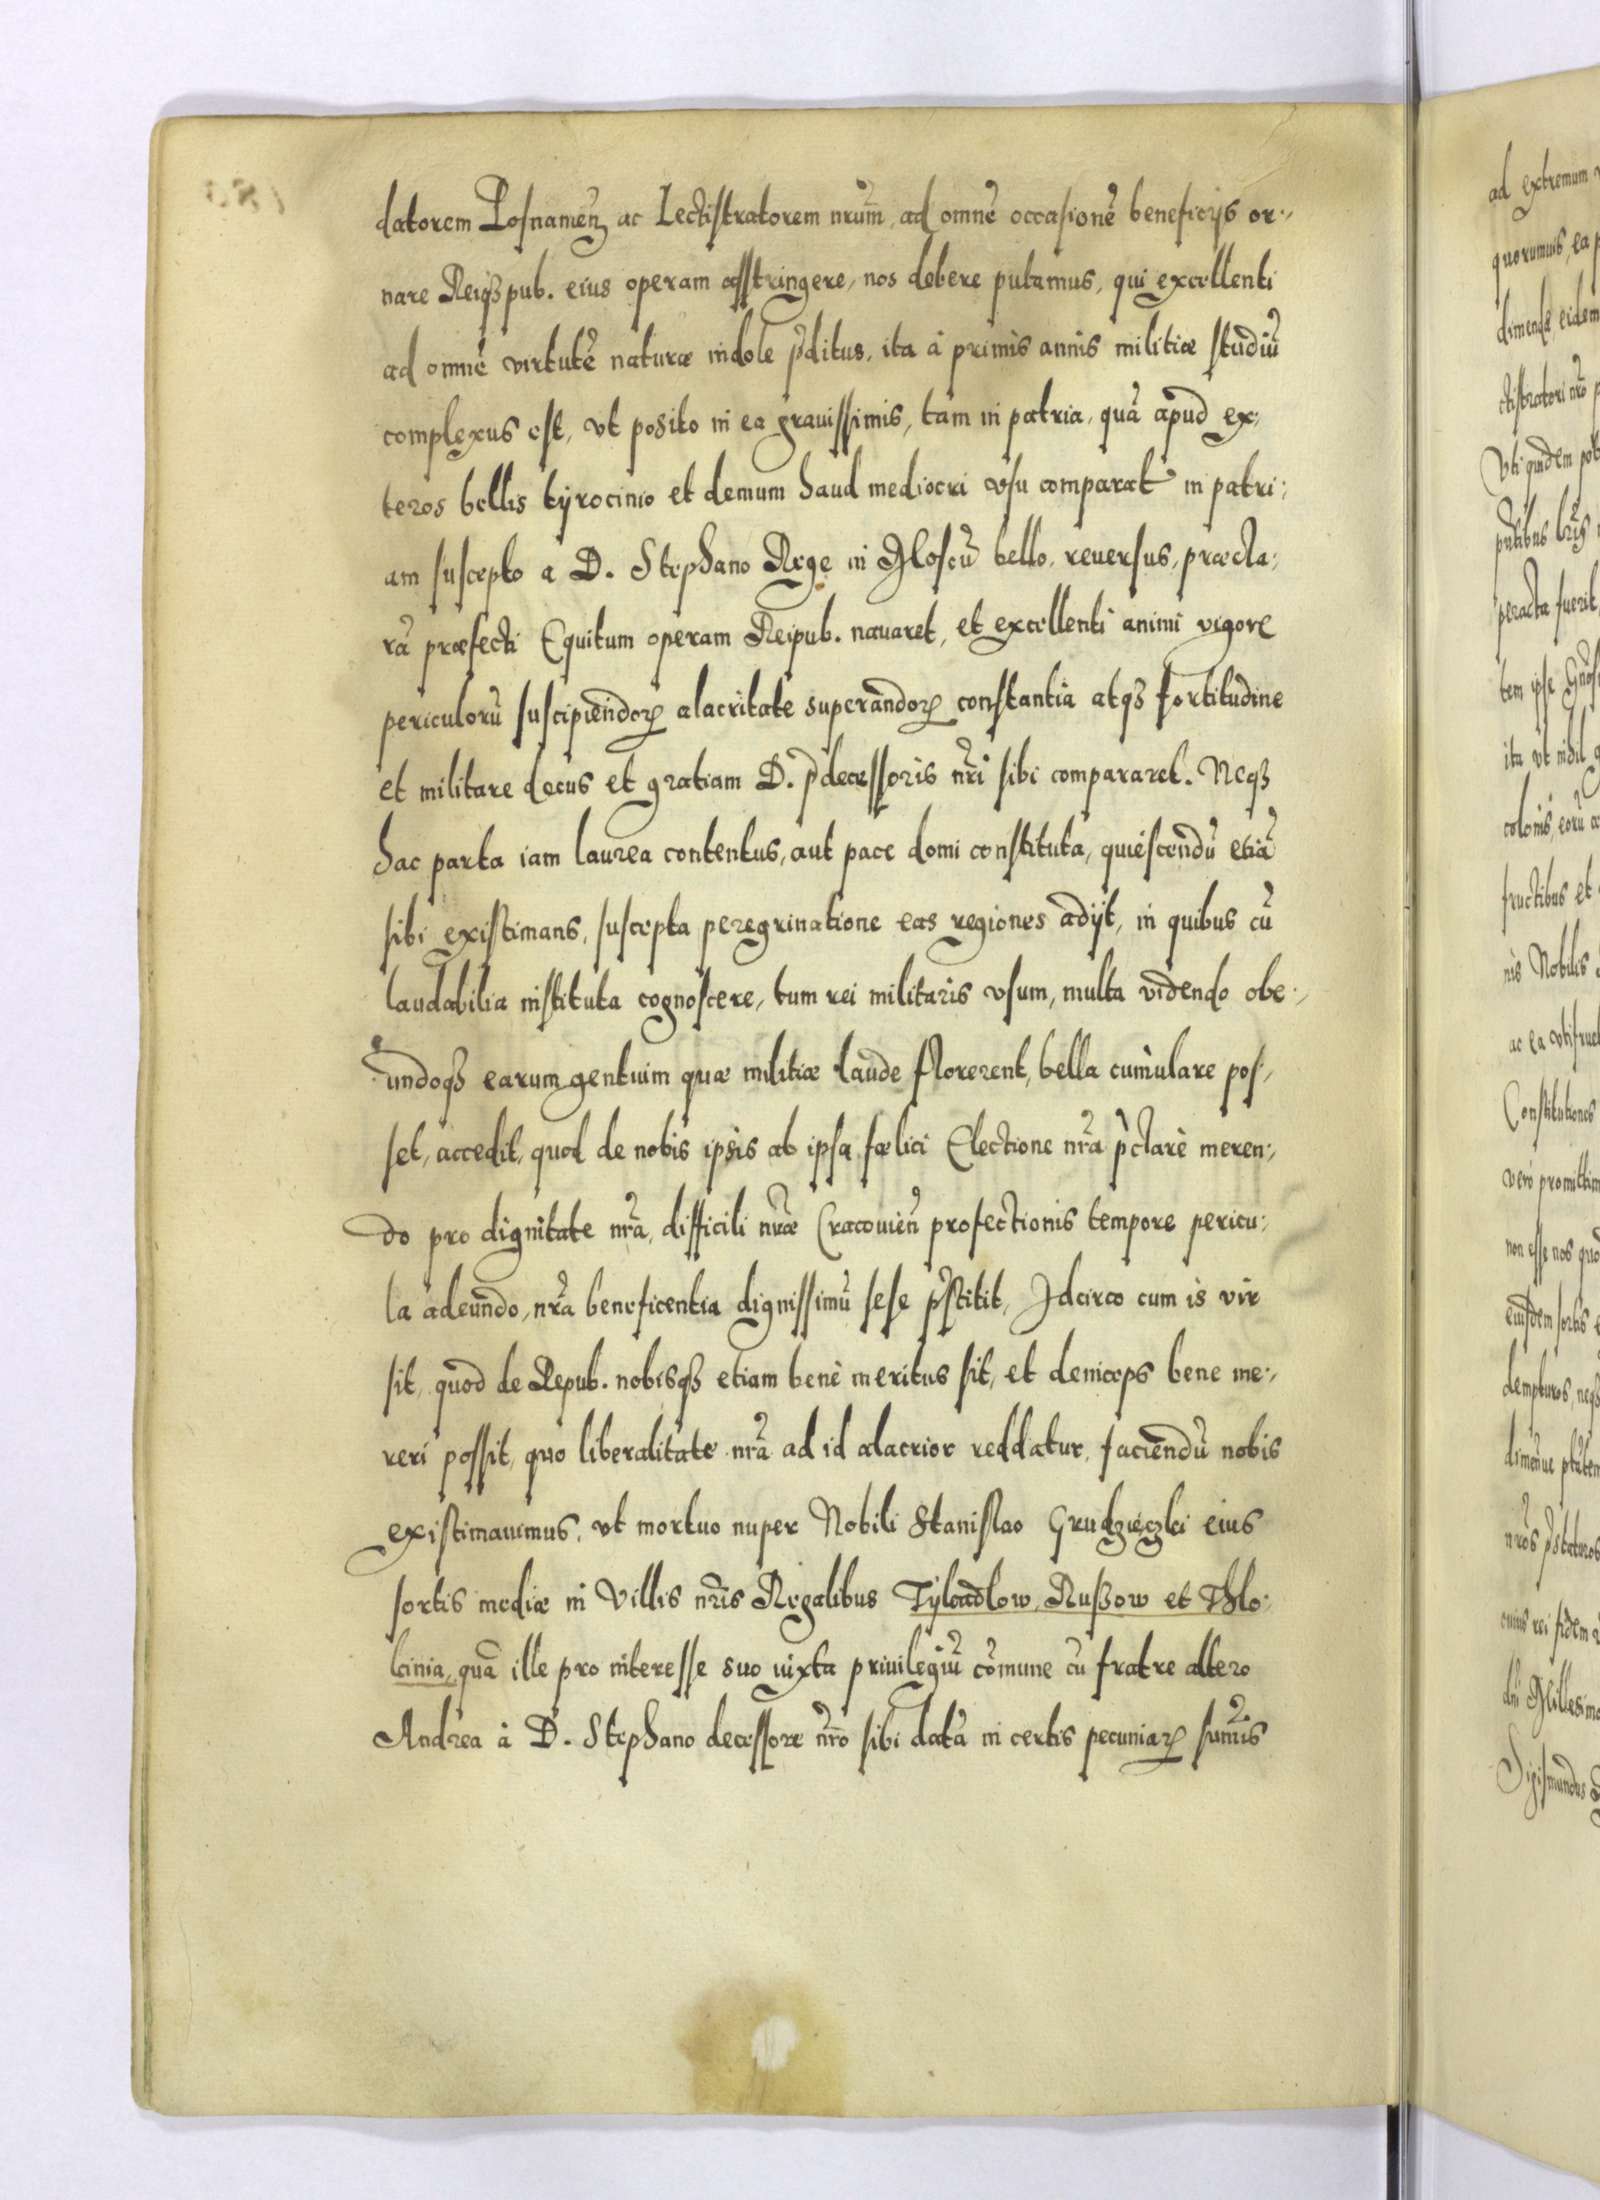 datorem Posnanieñ ac Lectistratorem nrũm, ad omnẽ occasionẽ beneficijs or-
nare Reiqȝ pub. eius operam asstringere, nos debere putamus, qui excellenti
ad omnẽ virtutẽ naturæ indole p̃ditus, ita à primis annis militiæ studiũ
complexus est, vt posito in ea grauissimis, tam in patria, quã apud ex-
teros bellis tÿrocinio et demum haud mediocri vsu comparat in patri-
am suscepto a D. Stephano Rege in Moscũ bello, reuersus, præcla-
rã præfecti Equitum operam Reipub. nauaret, et excellenti animi vigore
periculorũ suscipiendoꝝ alacritate superandoꝝ constantia atqȝ fortitudine
et militare decus et gratiam D. p̃decessoris nr̃i sibi compararet. Neqȝ
hac parta iam laurea contentus, aut pace domi constituta, quiescendũ etiã
sibi existimans, suscepta peregrinatione eas regiones adijt, in quibus cũ
laudabilia instituta cognoscere, tum rei militaris vsum, multa videndo obe-
undoqȝ earum gentium quæ militiæ laude florerent, bella cumulare pos-
set, accedit, quod de nobis ipsis ab ipsa fælici Electione nr̃a p̃clarè meren-
do pro dignitate nr̃a, difficili nr̃æ Cracouieñ profectionis tempore pericu-
la adeundo, nr̃a beneficentia dignissimũ sese p̃stitit, Idcirco cum is vir
sit, quod de Repub. nobisqȝ etiam benè meritus sit, et deinceps bene me-
reri possit, quo liberalitate nr̃a ad id alacrior reddatur, faciendũ nobis
existimauimus, vt mortuo nuper Nobili Stanislao Grudzieczki eius
sortis mediæ in Villis nr̃is Regalibus Tÿloadlow, Rußow et Thlo-
kinia, quã ille pro interesse suo iuxta priuilegiũ cõmune cũ fratre altero
Andrea à D. Stephano decessore nr̃o sibi datã in certis pecuniaꝝ sum̃is